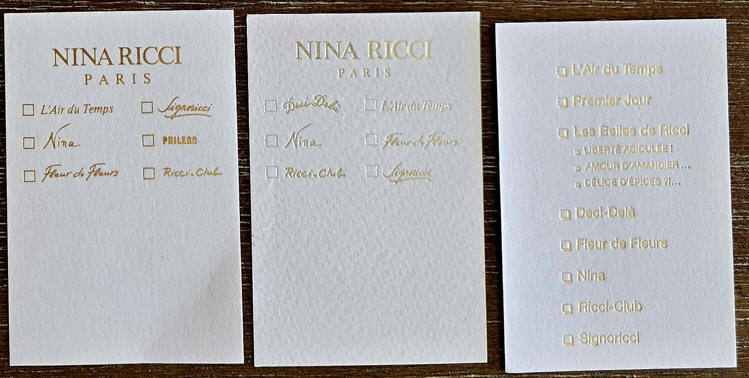 NINA RICCI
PARIS
L'Air du Temps
Signoricci
Nina
PHILEAS
Fleur de Fleurs
Ricci-Club
NINA RICCI
PARIS
Deci-Delà
L'Air du Temps
Nina
Fleur de Fleurs
Ricci-Club
Signoricci
L'Air du Temps
Premier Jour
Les Belles de Ricci
LIBERTÉ ACIDULÉE !
AMOUR D'AMANDIER ...
DÉLICE D'ÉPICES ?!...
Deci-Delà
Fleur de Fleurs
Nina
Ricci-Club
Signoricci